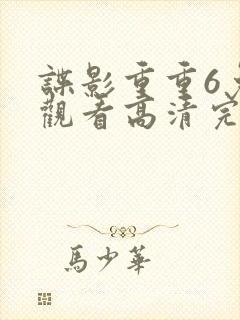 諜影重重6
觀看高清完
馬少華